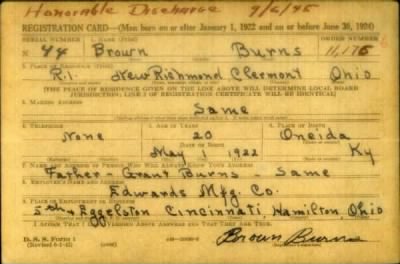 Honorable Discharge 9/6/45
REGISTRATION CARD—(Men born on or after January 1, 1922 and on or before June 30, 1924)
SERIAL NUMBER 1. NAME (Print) ORDER NUMBER
N 44 Brown Burns 11,175
2. PLACE OF RESIDENCE (Print)
R.1. New Richmond Clermont Ohio
[THE PLACE OF RESIDENCE GIVEN ON THE LINE ABOVE WILL DETERMINE LOCAL BOARD
JURISDICTION; LINE 2 OF REGISTRATION CERTIFICATE WILL BE IDENTICAL]
3. MAILING ADDRESS
Same
4. TELEPHONE 5. AGE IN YEARS 6. PLACE OF BIRTH
None 20 Oneida
DATE OF BIRTH
May 1 1922 Ky
7. NAME AND ADDRESS OF PERSON WHO WILL ALWAYS KNOW YOUR ADDRESS
Father - Grant Burns - Same
8. EMPLOYER'S NAME AND ADDRESS
Edwards Mfg. Co.
9. PLACE OF EMPLOYMENT OR BUSINESS
5th Eggelston Cincinnati, Hamilton Ohio
I AFFIRM THAT I HAVE VERIFIED ABOVE ANSWERS AND THAT THEY ARE TRUE.
D. S. S. Form 1
(Revised 6-1-42) Brown Burns